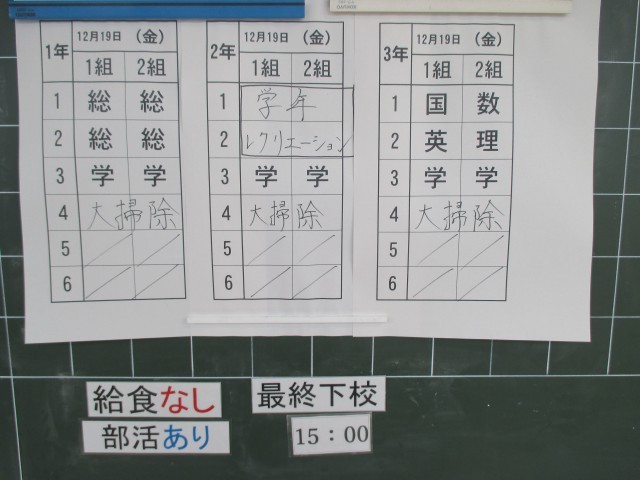 1年 12月19日 (金)
1組 2組
1 総 総
2 総 総
3 学 学
4 大掃除
5
6
2年 12月19日 (金)
1組 2組
1 学年
2 レクリエーション
3 学 学
4 大掃除
5
6
3年 12月19日 (金)
1組 2組
1 国 数
2 英 理
3 学 学
4 大掃除
5
6
給食なし
部活あり
最終下校
15:00